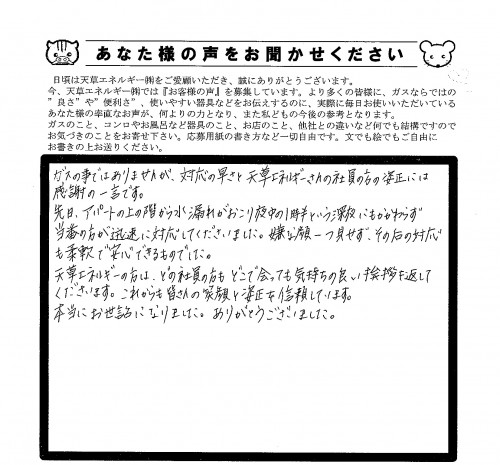 あなた様の声をお聞かせください
日頃は天草エネルギー㈱をご愛顧いただき、誠にありがとうございます。
今、天草エネルギー㈱では『お客様の声』を募集しています。より多くの皆様に、ガスならではの
”良さ”や”便利さ”、使いやすい器具などをお伝えするのに、実際に毎日お使いいただいている
あなた様の率直なお声が、何よりの力となり、また私どもの今後の参考となります。
ガスのこと、コンロやお風呂など器具のこと、お店のこと、他社との違いなど何でも結構ですので
お気づきのことをお寄せ下さい。応募用紙の書き方など一切自由です。文でも絵でもご自由に
お書きの上お送りください。
ガスの事ではありませんが、対応の早さと天草エネルギーさんの社員の方の姿正には
感謝の一言です。
先日、アパートの上の階から水漏れがおこり夜中の1時半という深夜にもかかわらず
当番の方が迅速に対応してくださいました。嫌な顔一つ見せず、その后の対応
も柔軟で安心できるものでした。
天草エネルギーの方は、どの社員の方もどこで会っても気持ちの良い挨拶を返して
くださいます。これからも皆さんの笑顔と姿正を信頼しています。
本当にお世話になりました。ありがとうございました。